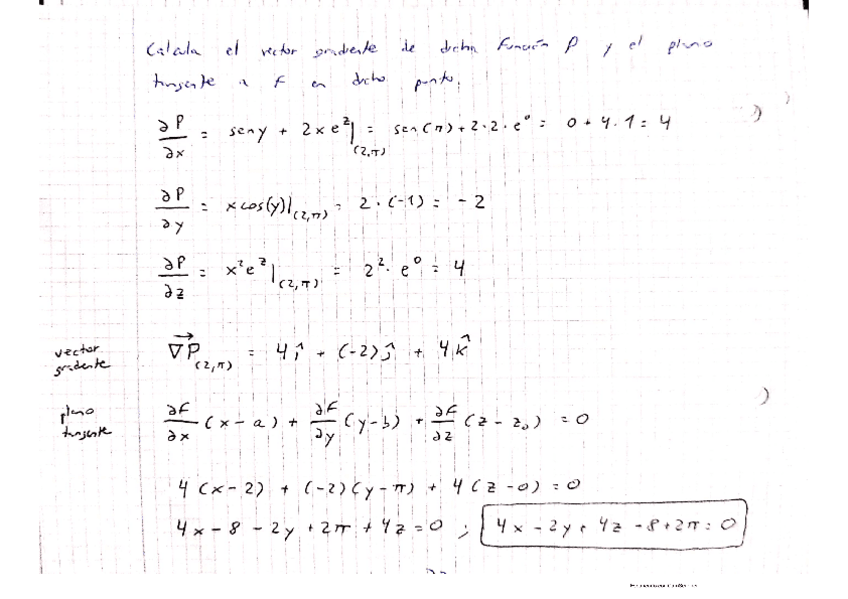 Calcula el vector gradiente de dicha función P y el plano
tangente a F en dicho punto.
∂P/∂x = sen y + 2xe^z|(2,π) = sen(π) + 2·2·e^0 = 0 + 4·1 = 4
∂P/∂y = x cos(y)|(2,π) = 2·(-1) = -2
∂P/∂z = x²e^z|(2,π) = 2²·e^0 = 4
vector gradiente ∇P(2,π) = 4î + (-2)ĵ + 4k̂
plano tangente ∂F/∂x (x-a) + ∂F/∂y (y-b) + ∂F/∂z (z-z₀) = 0
4(x-2) + (-2)(y-π) + 4(z-0) = 0
4x - 8 - 2y + 2π + 4z = 0 ; 4x - 2y + 4z - 8 + 2π = 0